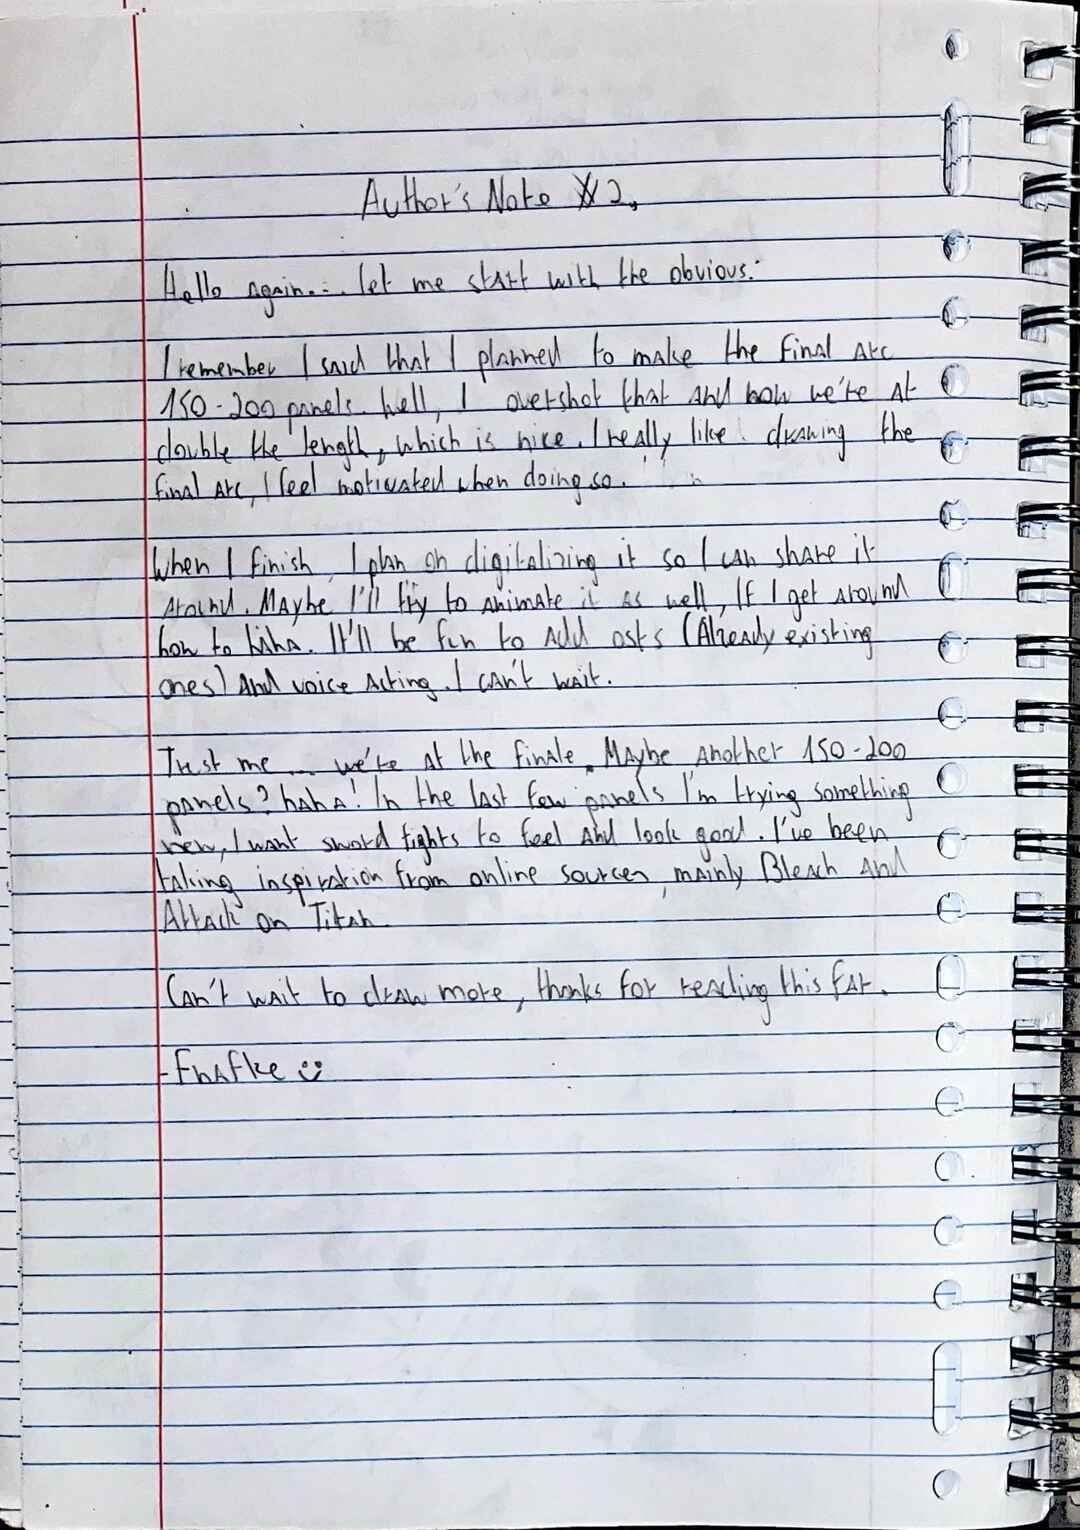 Author's Note #2.
Hello again... let me start with the obvious:
I remember I said that I planned to make the final arc
150-200 panels. Well, I overshot that and now we're at
double the length, which is nice. I really like drawing the
final arc, I feel motivated when doing so.
When I finish, I plan on digitalizing it so I can share it
around. Maybe I'll try to animate it as well, If I get around
how to haha. It'll be fun to add osts (Already existing
ones) and voice acting. I can't wait.
Trust me... we're at the finale. Maybe another 150-200
panels? haha! In the last few panels I'm trying something
new, I want sword fights to feel and look good. I've been
taking inspiration from online sources, mainly Bleach and
Attack on Titan.
Can't wait to draw more, thanks for reading this far.
-Fnafke